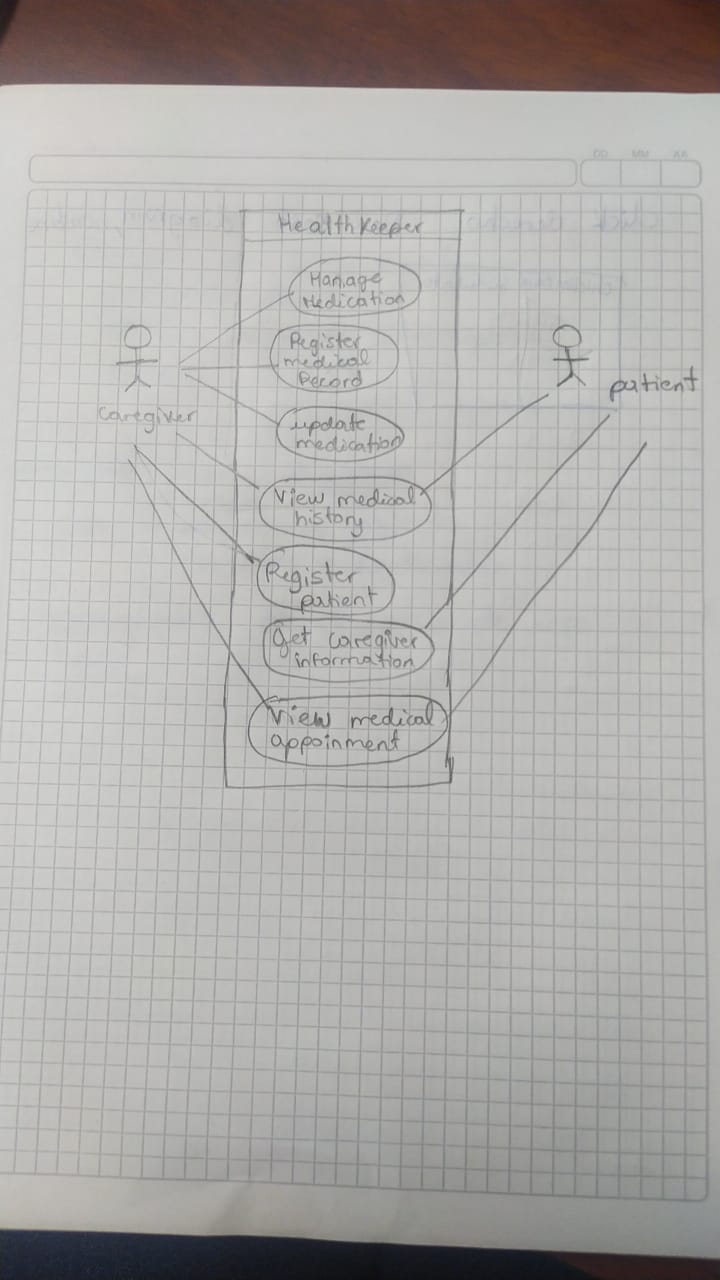 DD MM AA
Health Keeper
Manage
Medication
Register
medical
Record
caregiver
patient
update
medication
View medical
history
Register
patient
Get caregiver
information
View medical
appoinment